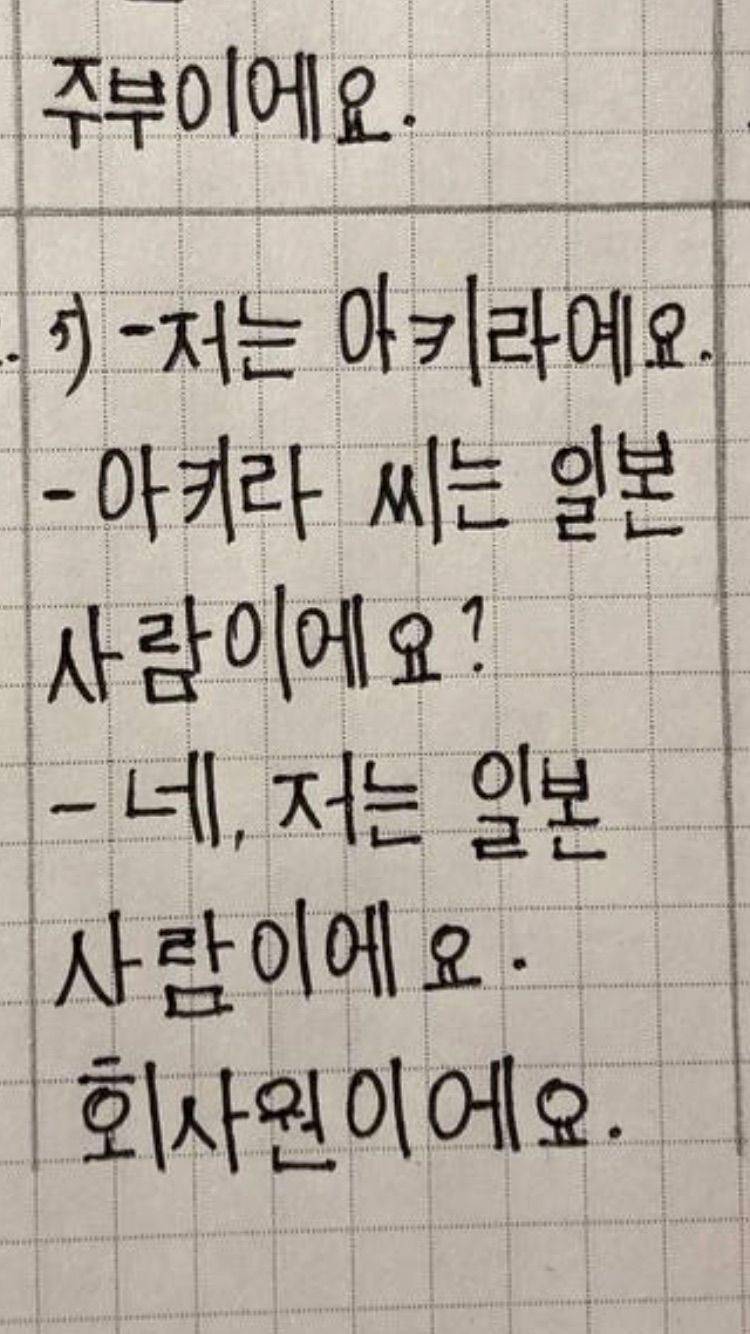 주부이에요.
5) -저는 아키라예요.
-아키라 씨는 일본
사람이에요?
-네, 저는 일본
사람이에요.
회사원이에요.